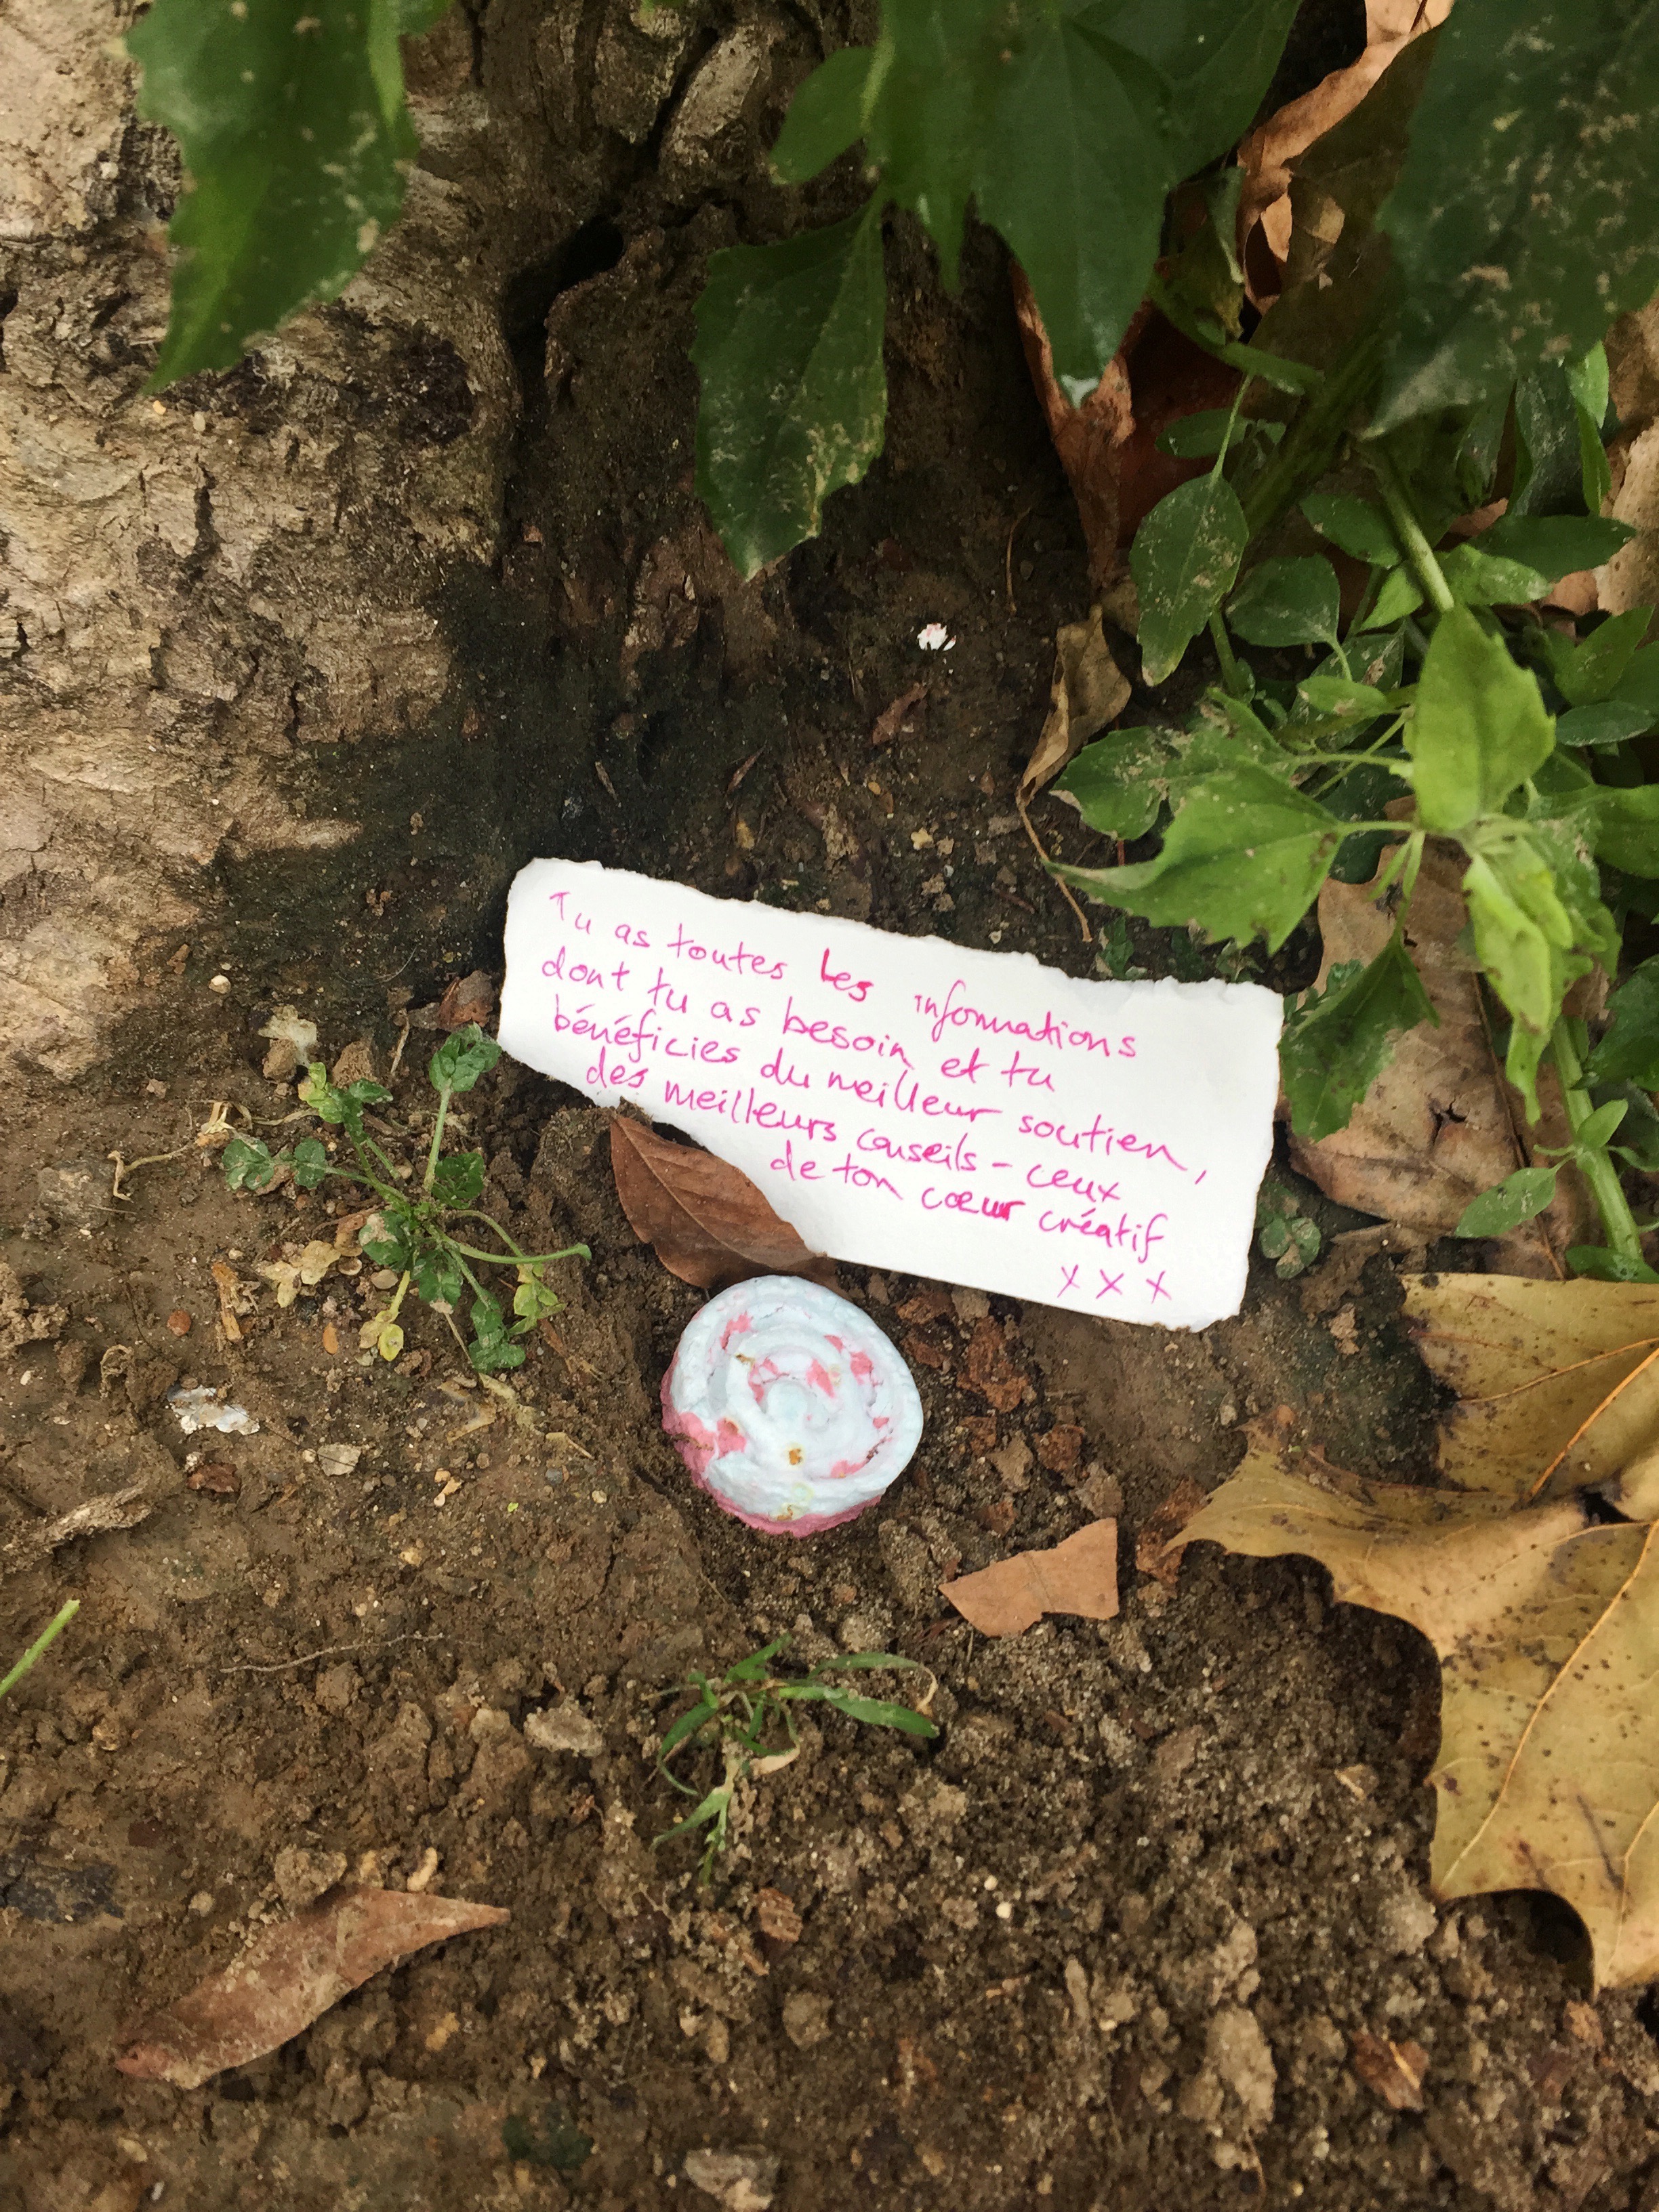 Tu as toutes les informations
dont tu as besoin et tu
bénéficies du meilleur soutien,
des meilleurs conseils - ceux
de ton cœur créatif
x x x